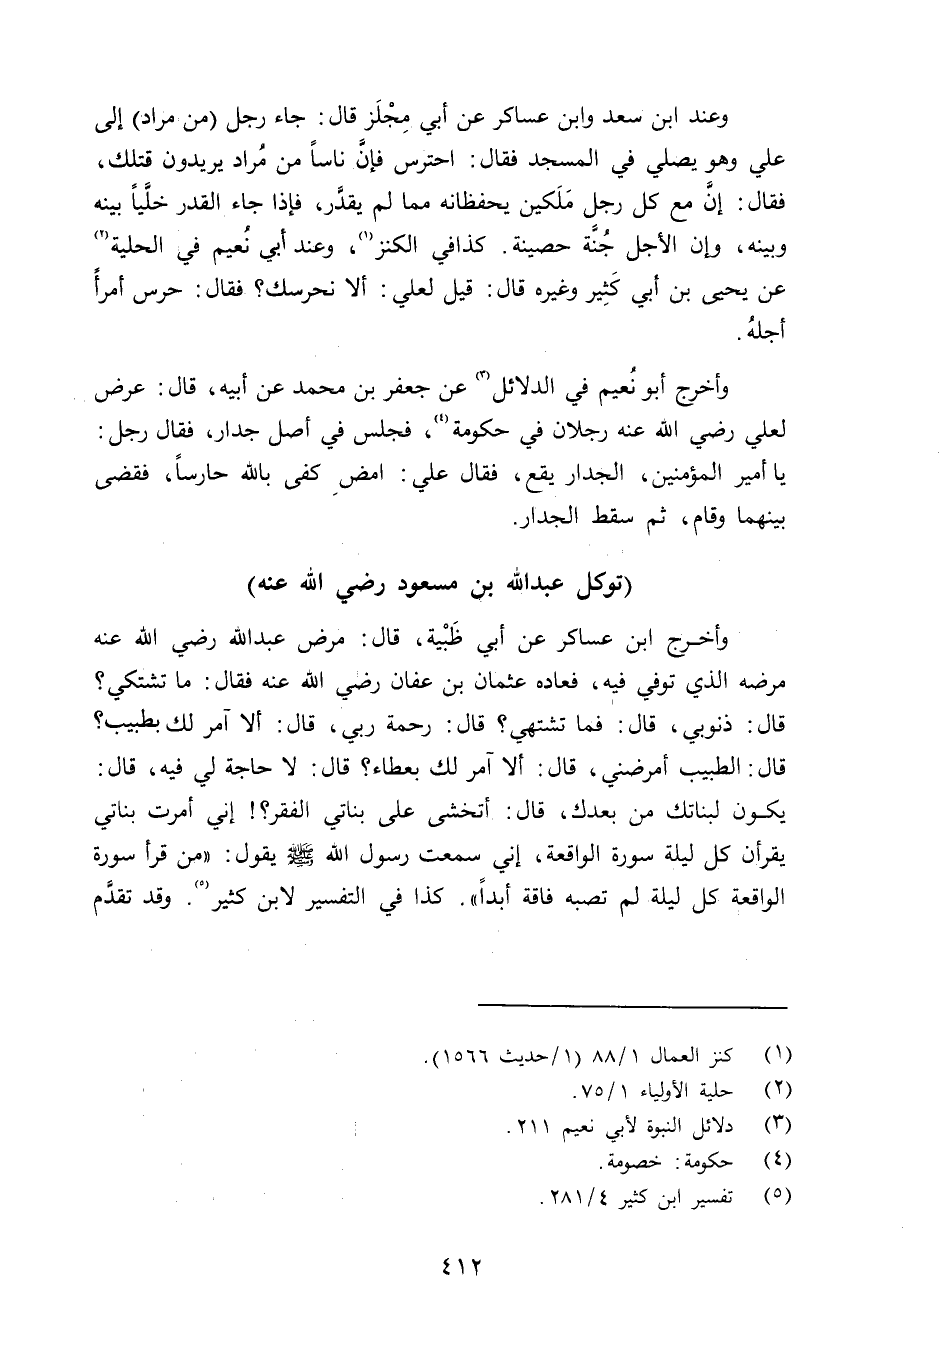 وعند ابن سعد وابن عساكر عن أبي مِجْلَز قال: جاء رجل (من مراد) إلى
علي وهو يصلي في المسجد فقال: احترس فإنَّ ناساً من مُراد يريدون قتلك،
فقال: إنَّ مع كل رجل مَلَكين يحفظانه مما لم يقدَّر، فإذا جاء القدر خلَّياً بينه
وبينه، وإن الأجل جُنَّة حصينة. كذافي الكنز(١)، وعند أبي نُعيم في الحلية(٢)
عن يحيى بن أبي كَثِير وغيره قال: قيل لعلي: ألا نحرسك؟ فقال: حرس أمرأً
أجلهُ.
وأخرج أبو نُعيم في الدلائل(٣) عن جعفر بن محمد عن أبيه، قال: عرض
لعلي رضي الله عنه رجلان في حكومة(٤)، فجلس في أصل جدار، فقال رجل:
يا أمير المؤمنين، الجدار يقع، فقال علي: امض كفى بالله حارساً، فقضى
بينهما وقام، ثم سقط الجدار.
(توكل عبدالله بن مسعود رضي الله عنه)
وأخرج ابن عساكر عن أبي ظَبْية، قال: مرض عبدالله رضي الله عنه
مرضه الذي توفي فيه، فعاده عثمان بن عفان رضي الله عنه فقال: ما تشتكي؟
قال: ذنوبي، قال: فما تشتهي؟ قال: رحمة ربي، قال: ألا آمر لك بطبيب؟
قال: الطبيب أمرضني، قال: ألا آمر لك بعطاء؟ قال: لا حاجة لي فيه، قال:
يكون لبناتك من بعدك، قال: أتخشى على بناتي الفقر؟! إني أمرت بناتي
يقرأن كل ليلة سورة الواقعة، إني سمعت رسول الله ﷺ يقول: «من قرأ سورة
الواقعة كل ليلة لم تصبه فاقة أبداً». كذا في التفسير لابن كثير(٥). وقد تقدَّم
(١) كنز العمال ٨٨/١ (١/حديث ١٥٦٦).
(٢) حلية الأولياء ٧٥/١.
(٣) دلائل النبوة لأبي نعيم ٢١١.
(٤) حكومة: خصومة.
(٥) تفسير ابن كثير ٢٨١/٤.
٤١٢